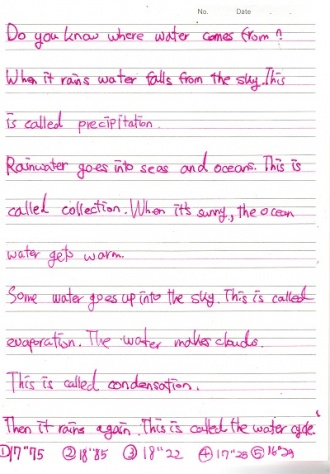 No. Date
Do you know where water comes from?
When it rains water falls from the sky. This
is called precipitation.
Rainwater goes into seas and oceans. This is
called collection. When it's sunny, the ocean
water gets warm.
Some water goes up into the sky. This is called
evaporation. The water makes clouds.
This is called condensation.
Then it rains again. This is called the water cycle.
①17"75 ②18"85 ③18"22 ④17"28 ⑤16"29